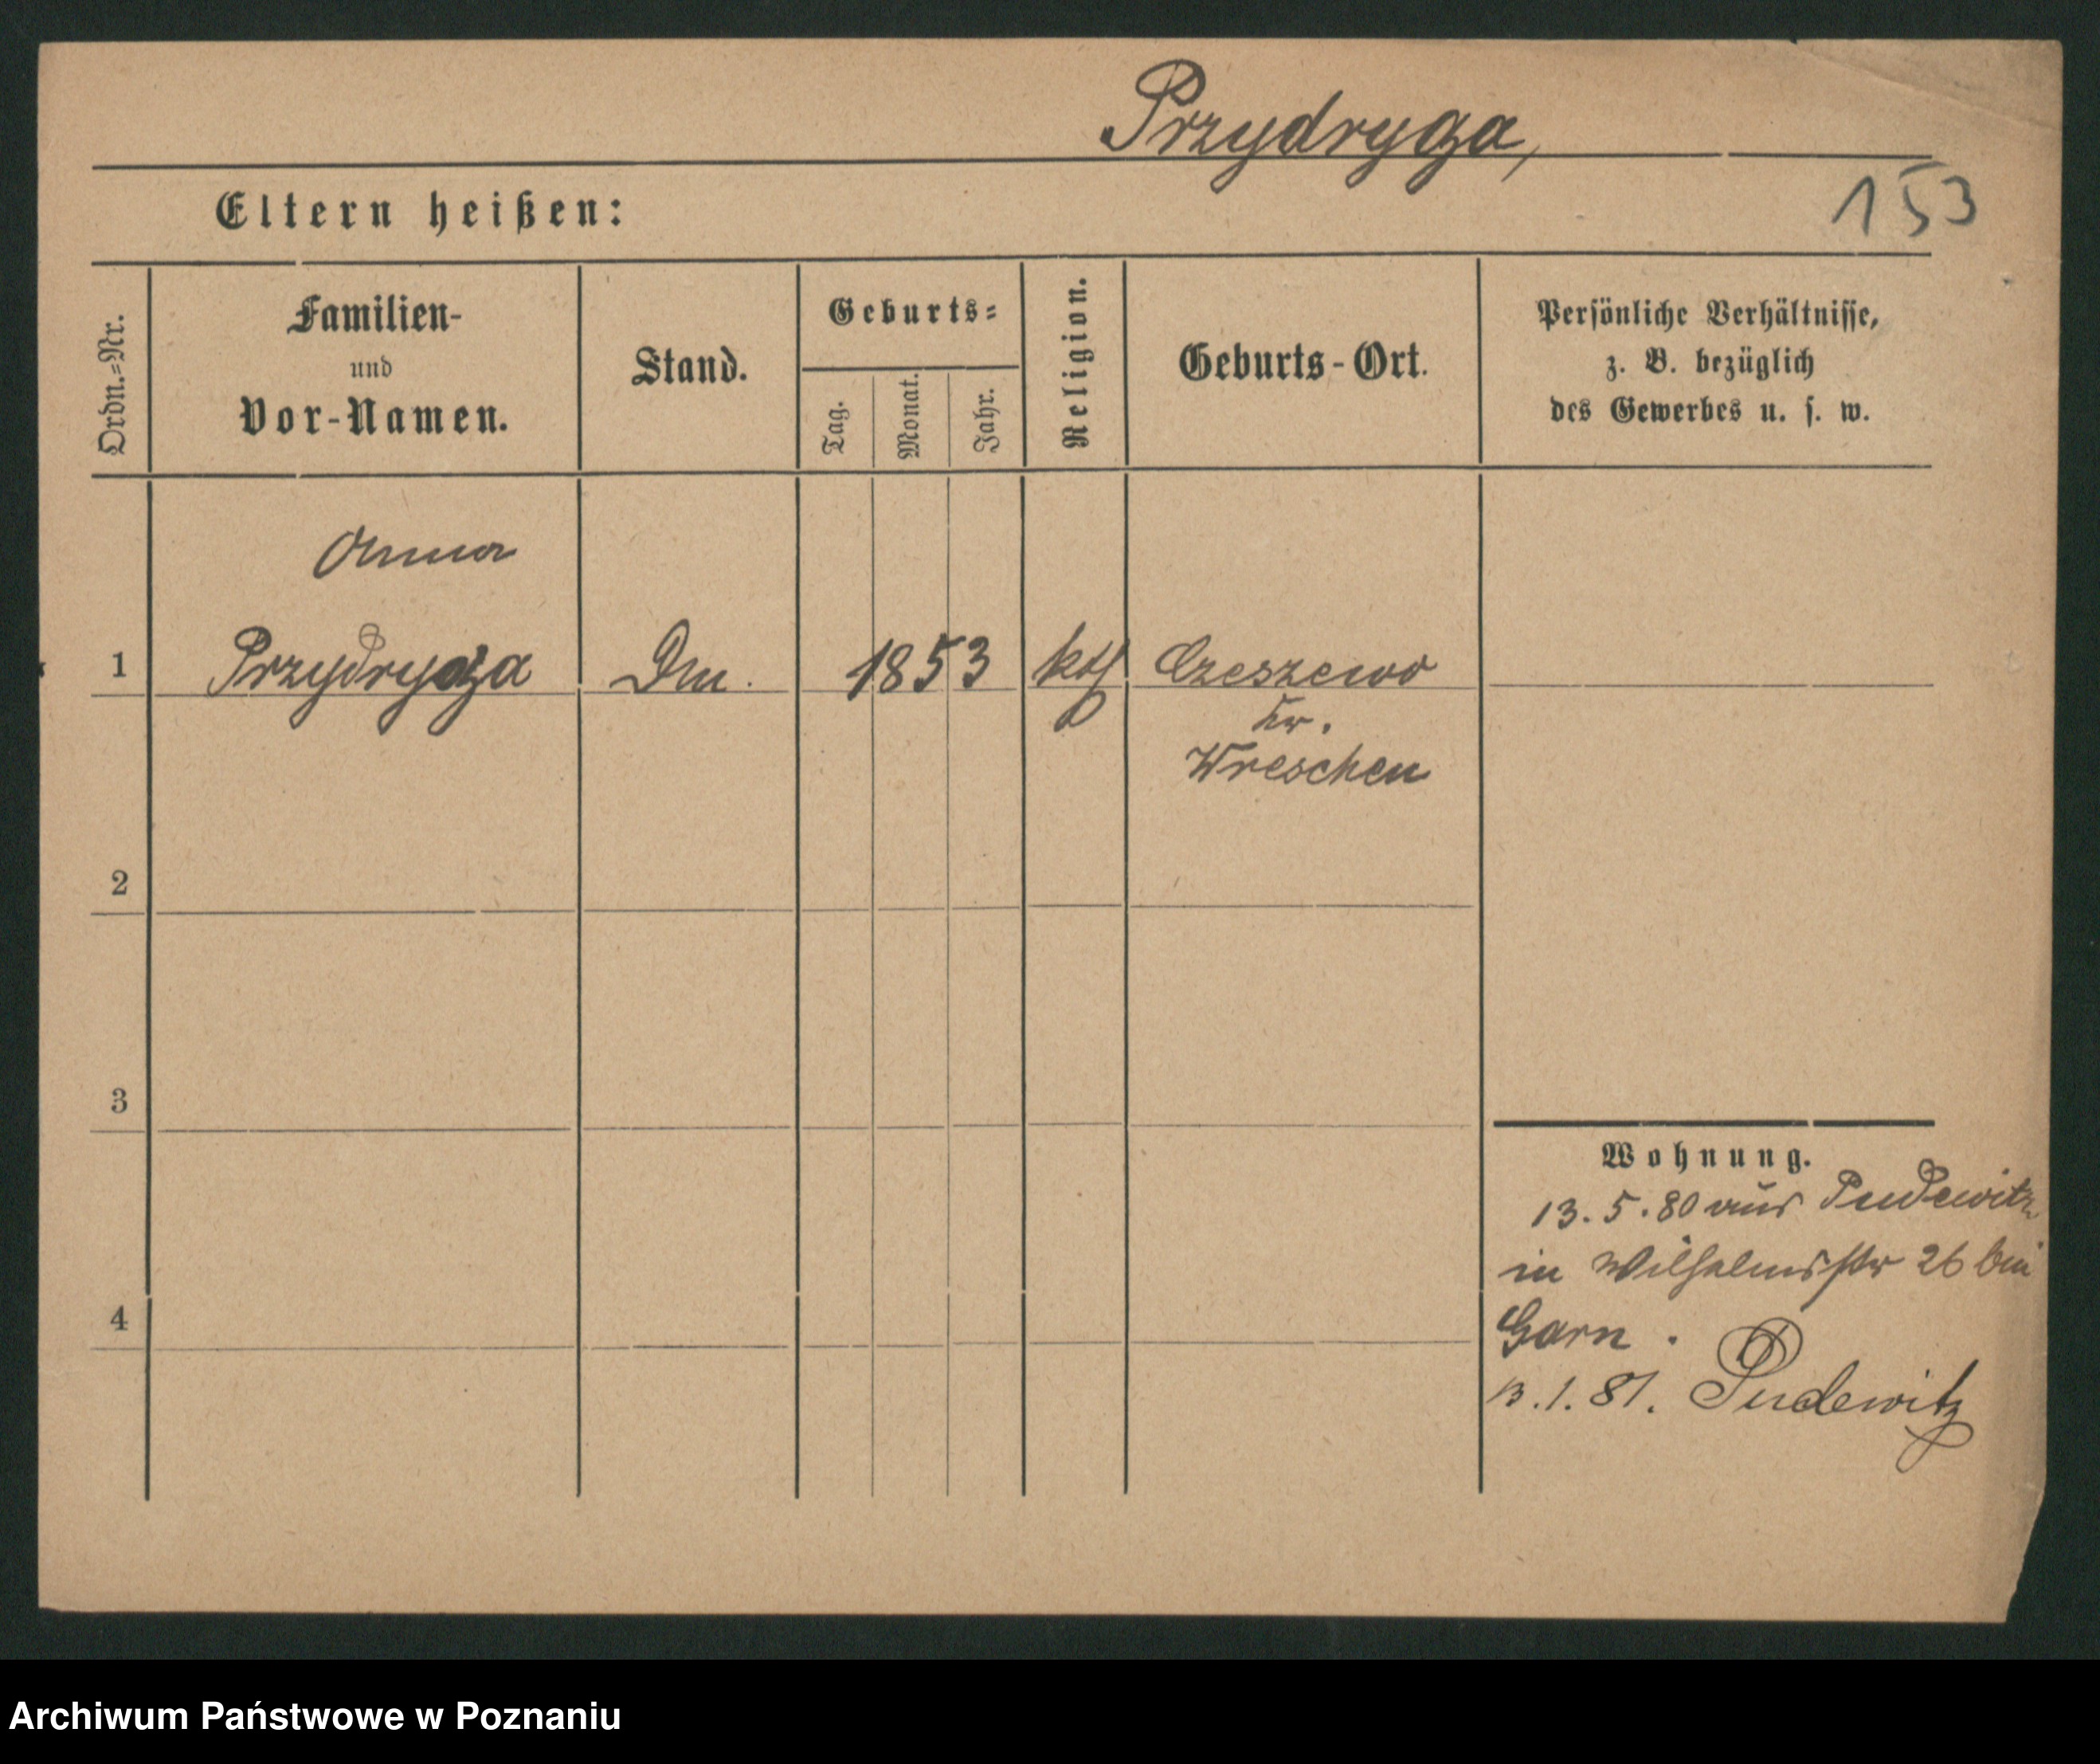 Przydryga,
153
Eltern heißen:
Ordn.=Nr.
Familien-
und
Vor-Namen.
Stand.
Geburts=
Tag.
Monat.
Jahr.
Religion.
Geburts-Ort.
Persönliche Verhältnisse,
z. B. bezüglich
des Gewerbes u. s. w.
Anna
1 Przydryga Dm. 1853 kth Czeszewo
Kr.
Wreschen
2
3
4
Wohnung.
13.5.80 aus Pudewitz
in Wilhelmsstr 26 bei
Garn.
13.1.81. Pudewitz
Archiwum Państwowe w Poznaniu